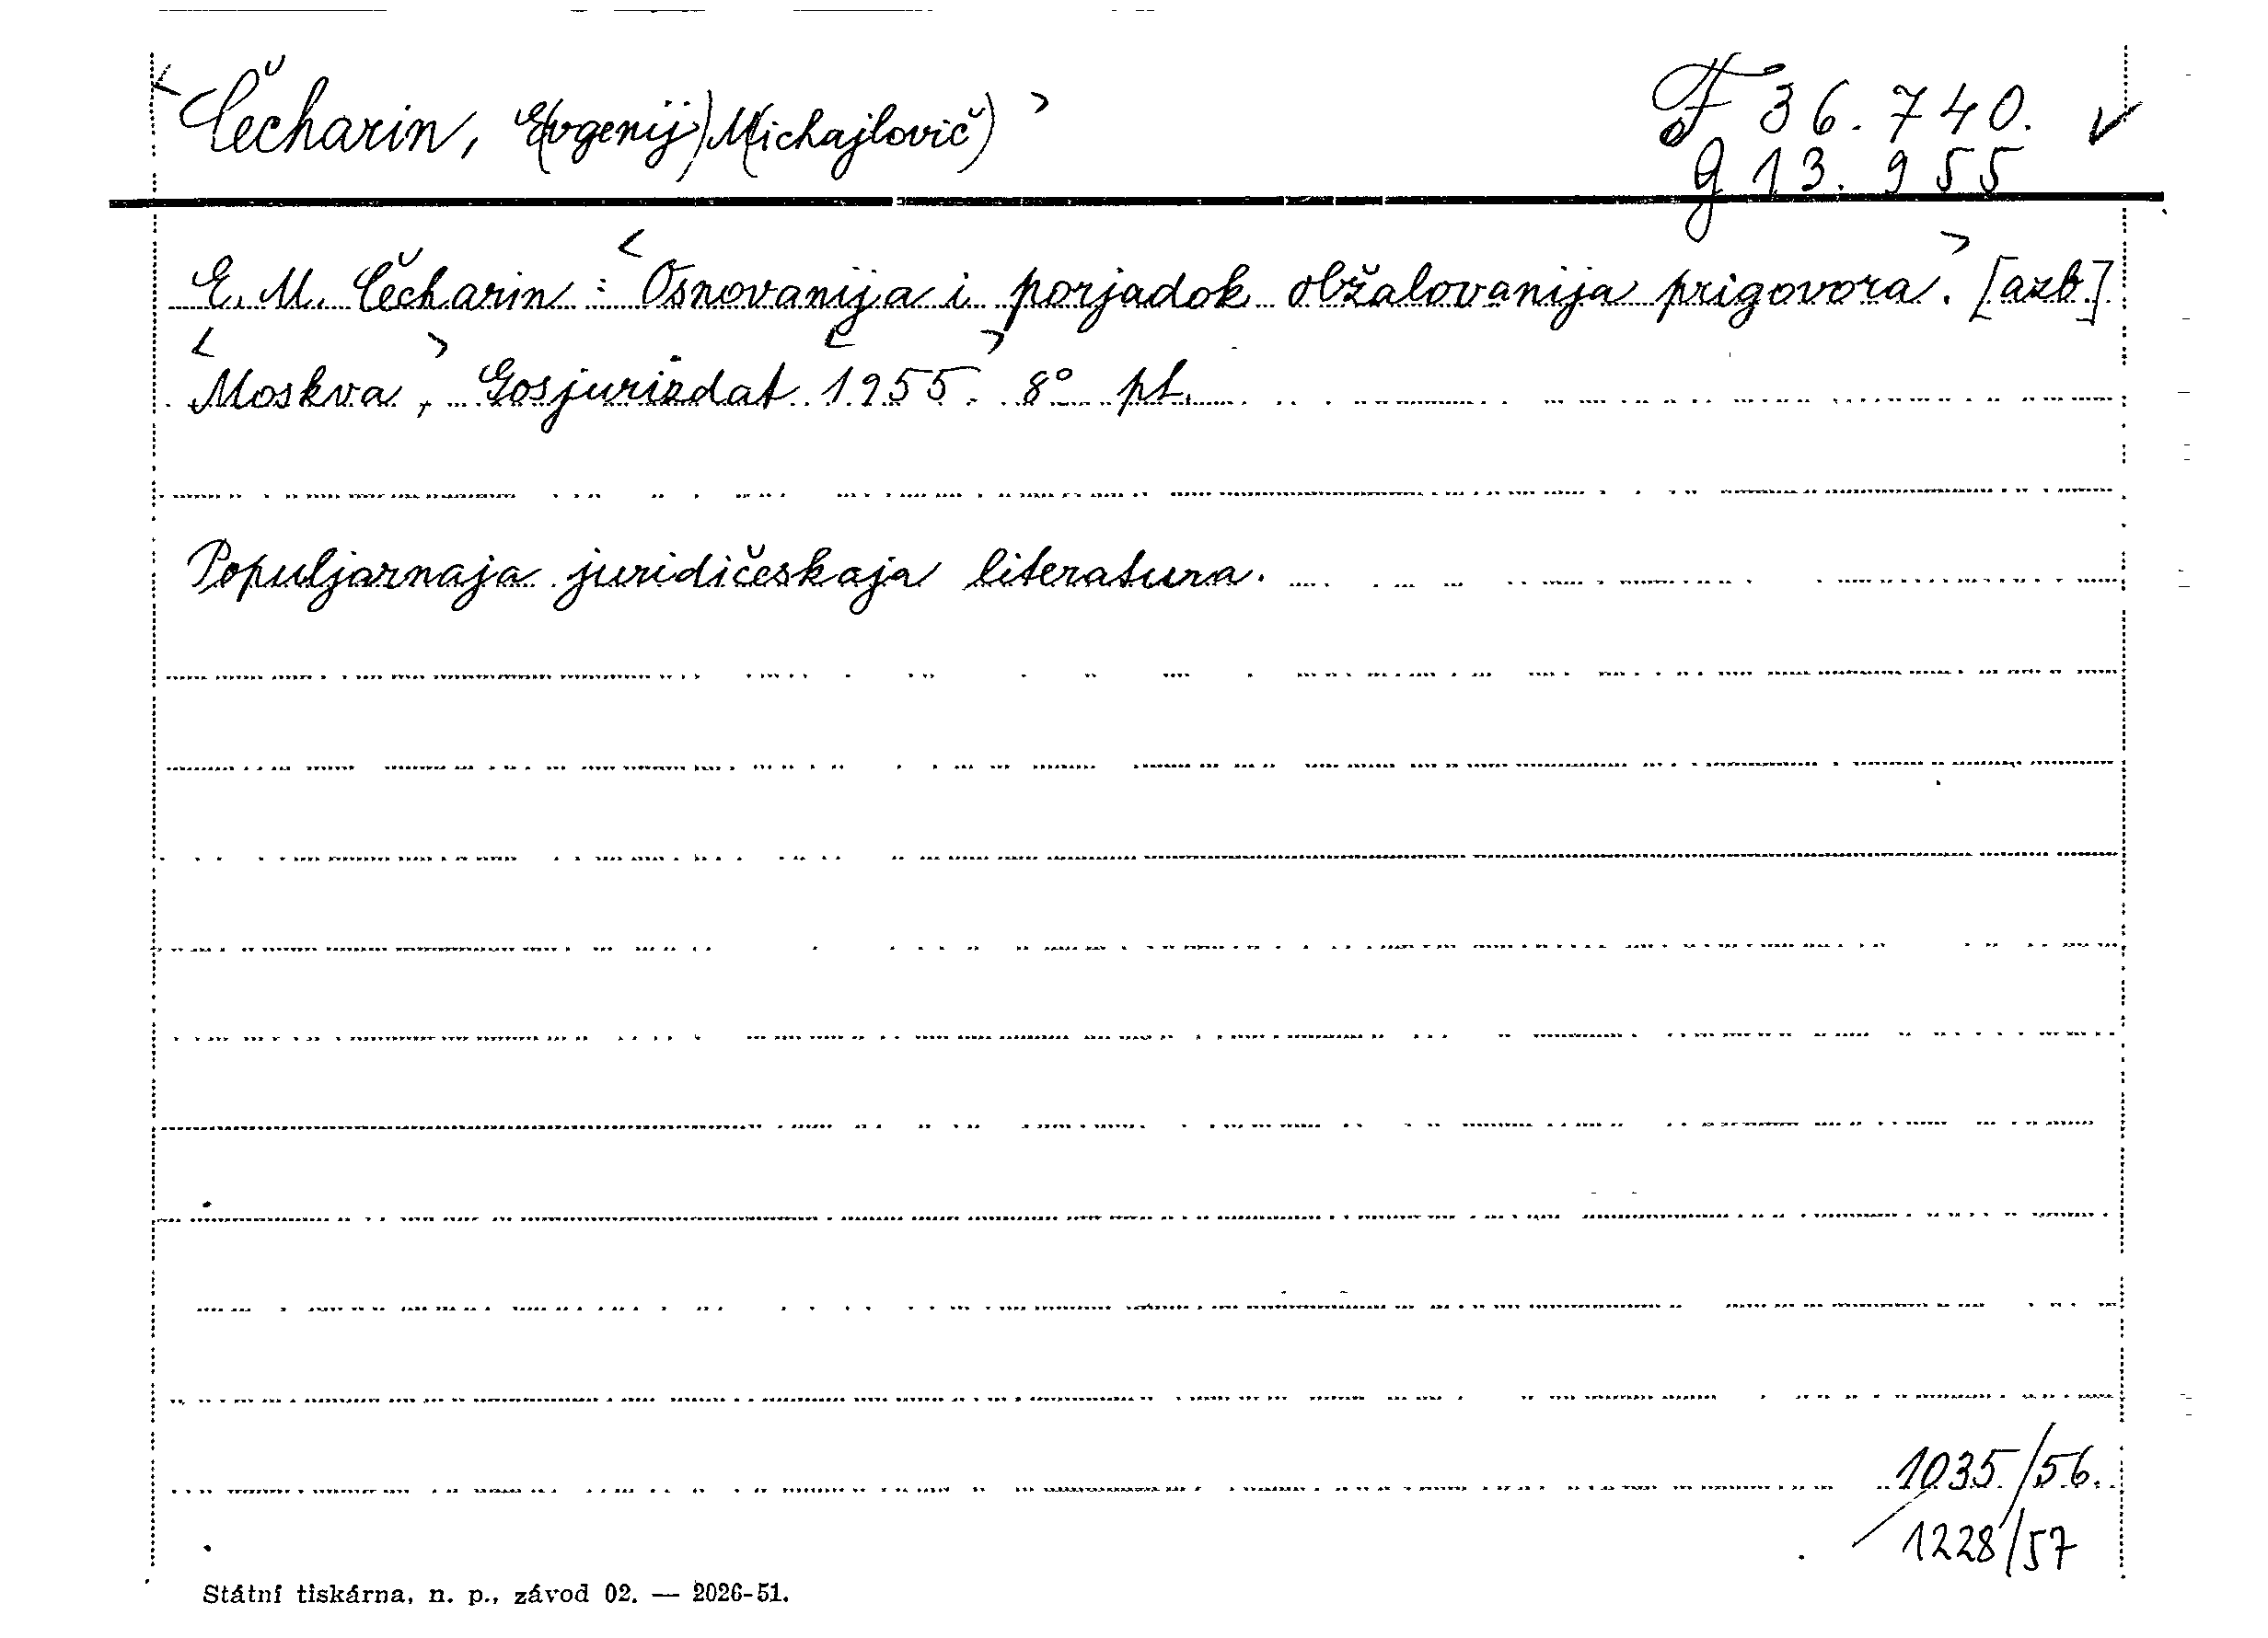 <Čecharin, E(vgenij) M(ichajlovič)>
F 36.740.
g 13.955
E. M. Čecharin: <Osnovanija i porjadok obžalovanija prigovora>. [azb.]
<Moskva>, Gosjurizdat <1955>. 8° pt.
Populjarnaja juridičeskaja literatura.
1035/56.
1228/57
Státní tiskárna, n. p., závod 02. — 2026-51.